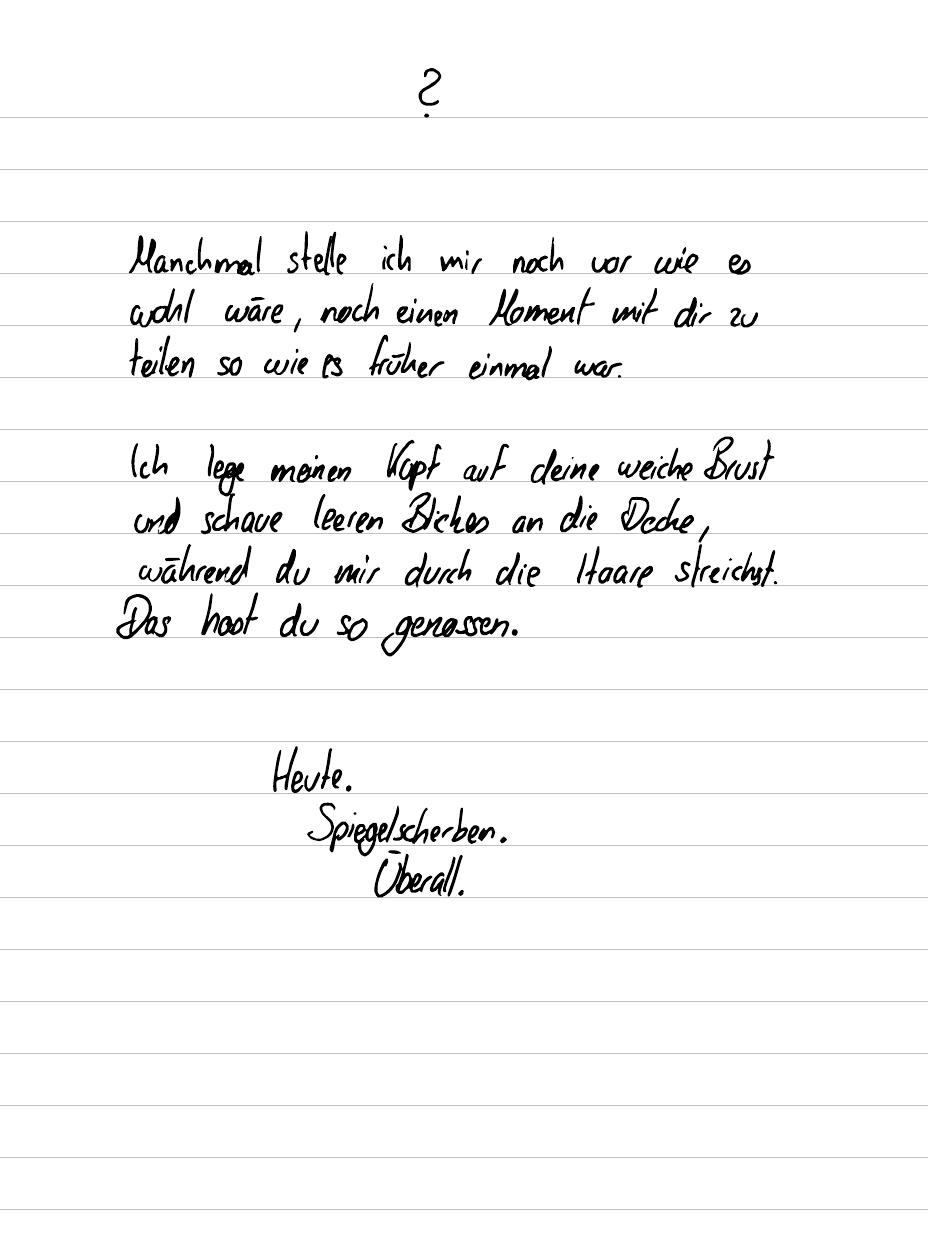 ?
Manchmal stelle ich mir noch vor wie es
wohl wäre, noch einen Moment mit dir zu
teilen so wie es früher einmal war.
Ich lege meinen Kopf auf deine weiche Brust
und schaue leeren Blickes an die Decke,
während du mir durch die Haare streichst.
Das hast du so genossen.
Heute.
Spiegelscherben.
Überall.